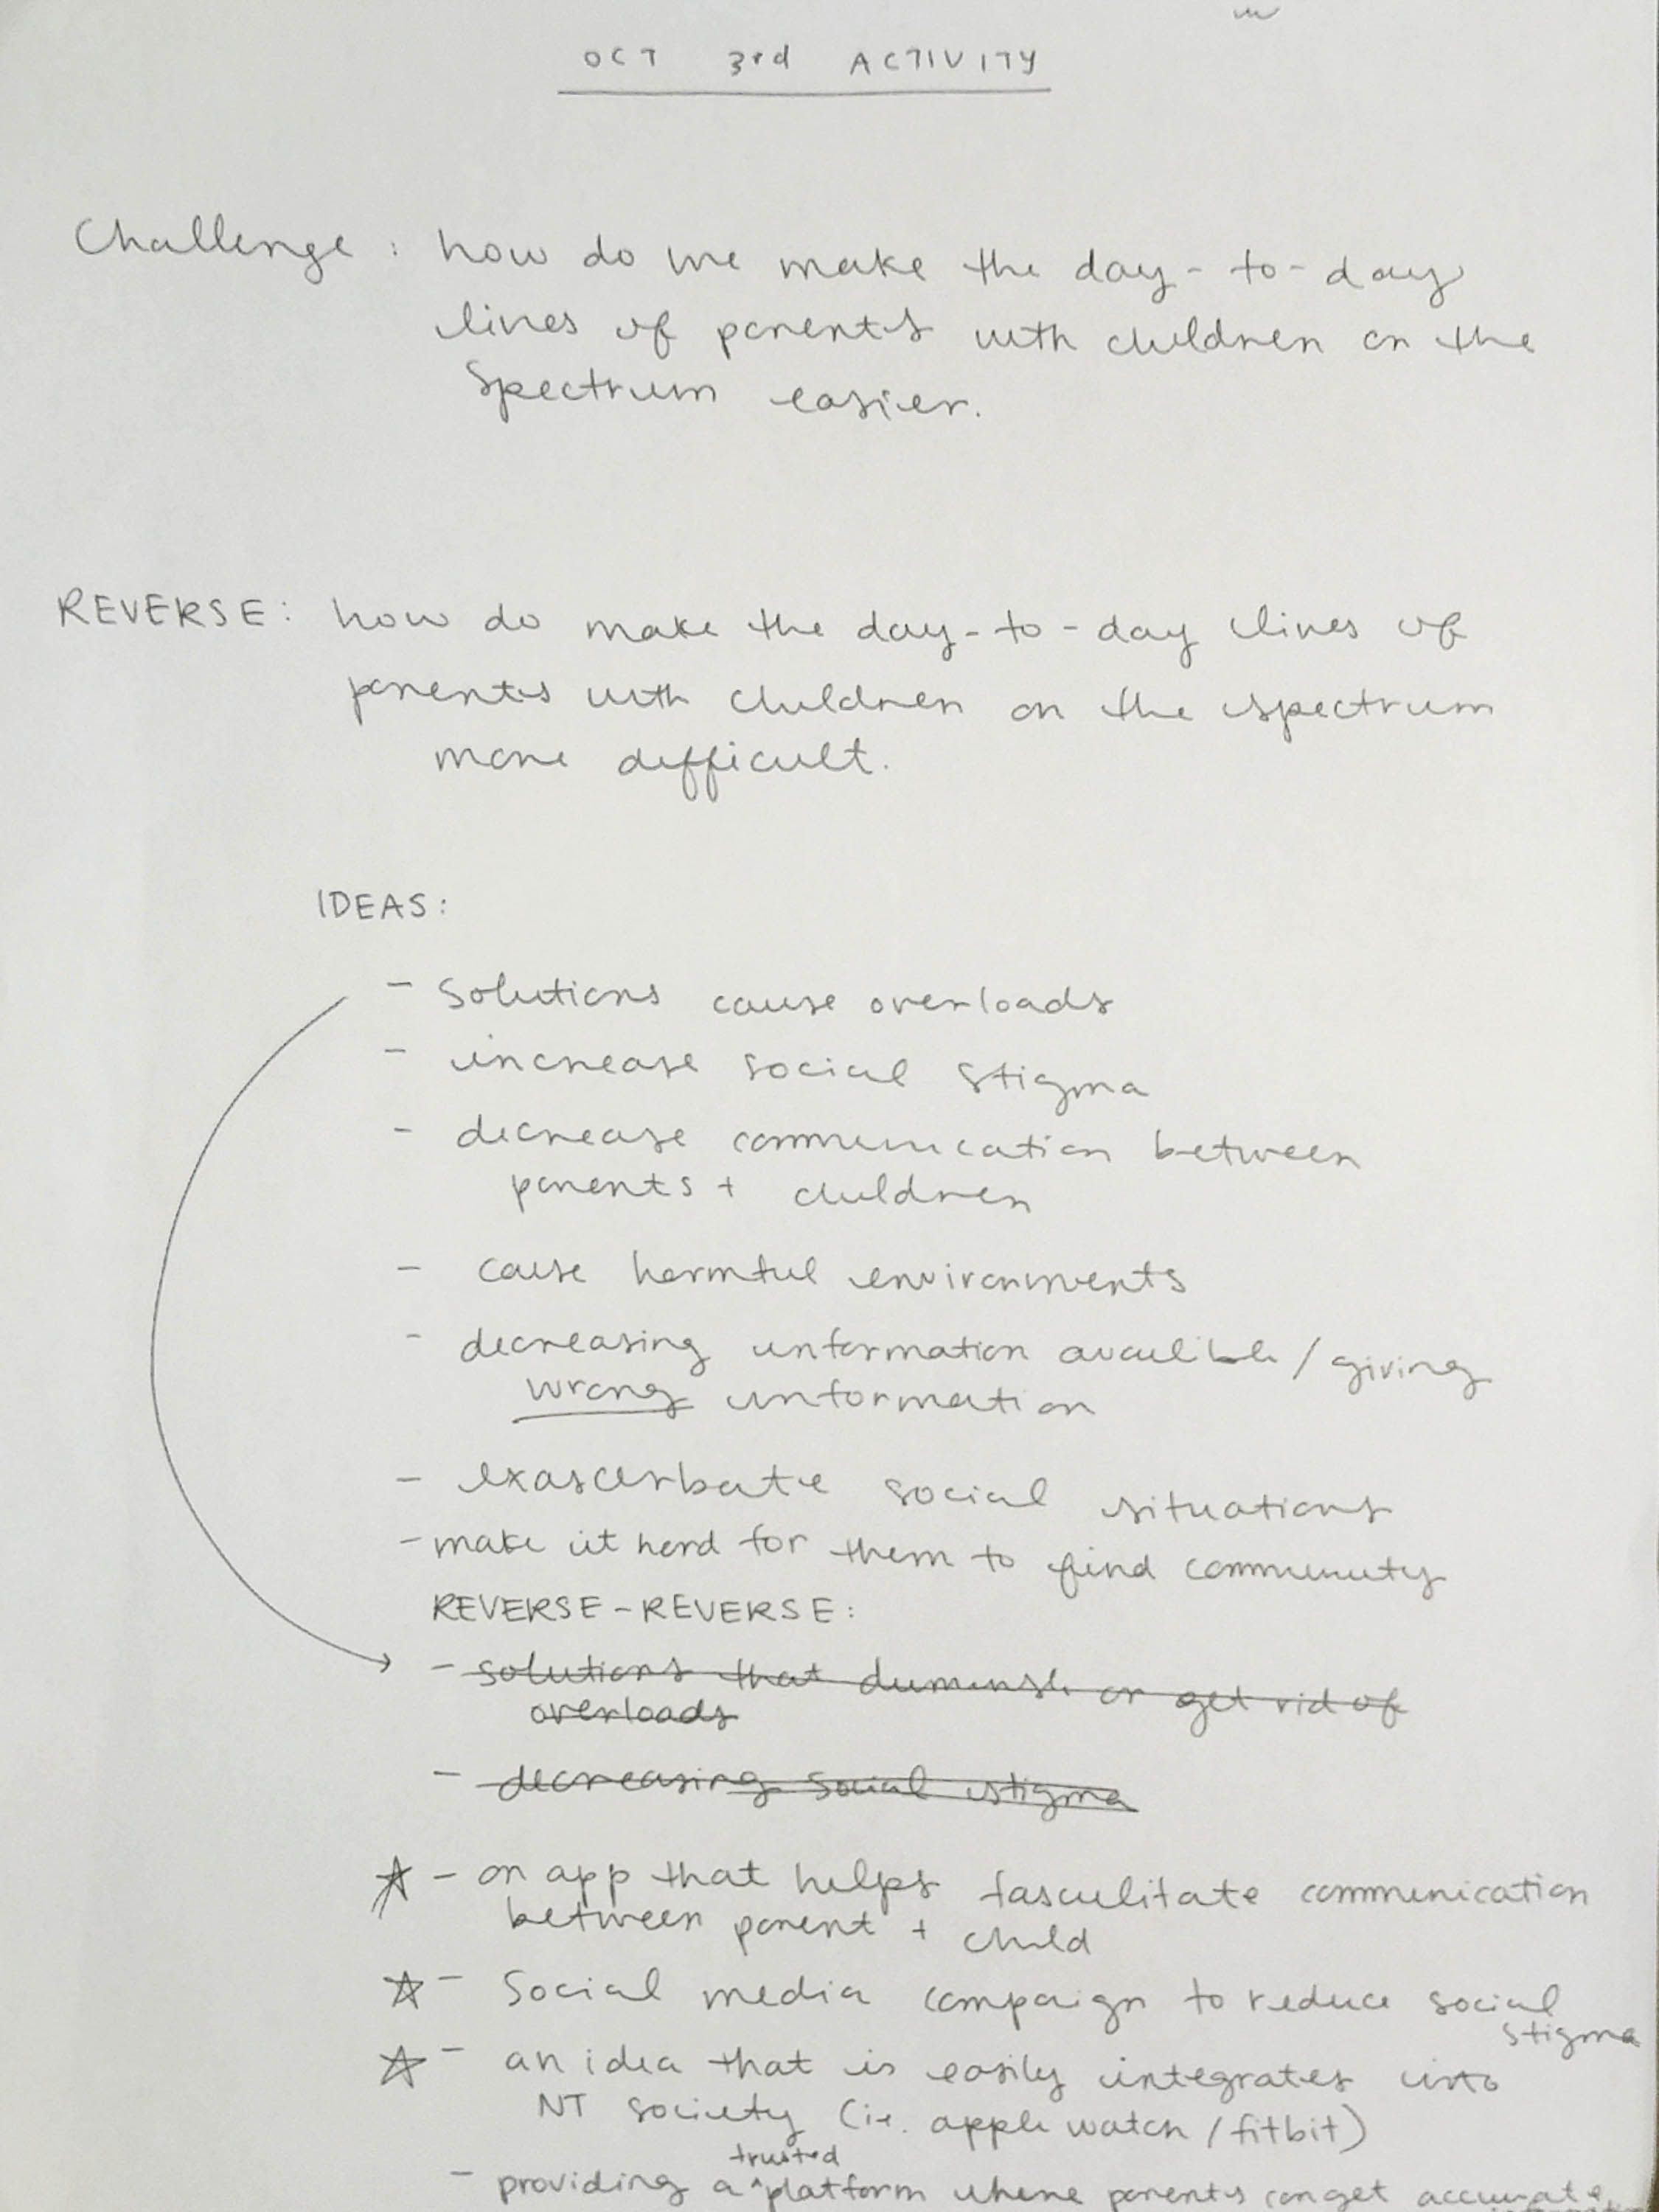 OCT 3rd ACTIVITY
Challenge: how do we make the day-to-day
lives of parents with children on the
spectrum easier.
REVERSE: how do make the day-to-day lives of
parents with children on the spectrum
more difficult.
IDEAS:
- solutions cause overloads
- increase social stigma
- decrease communication between
parents + children
- cause harmful environments
- decreasing information availible / giving
wrong information
- exascerbate social situations
- make it hard for them to find community
REVERSE-REVERSE:
- solutions that diminish or get rid of
overloads
- decreasing social stigma
☆ - an app that helps fasculitate communication
between parent + child
☆ - Social media campaign to reduce social
stigma
☆ - an idea that is easily integrates into
NT society (ie. apple watch / fitbit)
trusted
- providing a ^ platform where parents can get accurate